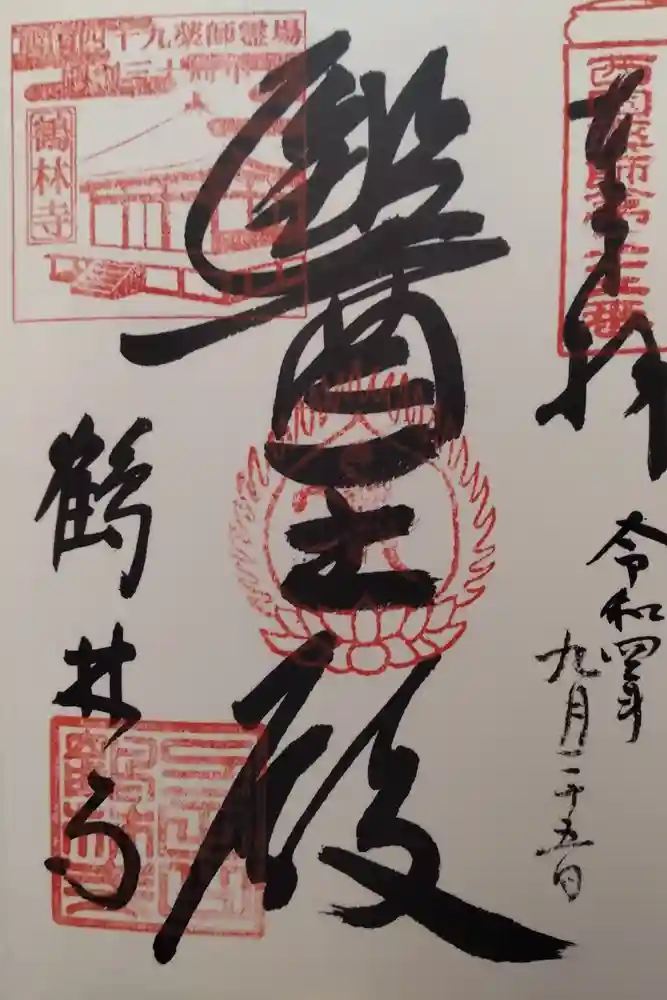 奉拝
令和四年
九月二十五日
西国薬師第二十二番
醫王殿
西国四十九薬師霊場
鶴林寺
鶴林寺